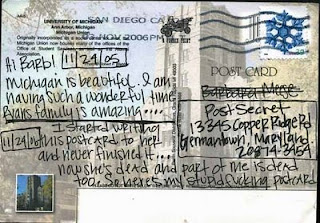 UNIVERSITY OF MICHIGAN
Ann Arbor, Michigan
Michigan Union
Originally incorporated as a
Michigan Union now houses many of the offices of the
Office of Student
Association.
SAN DIEGO CA
NOV 2006 PM
Hi Barb! 11/24/05
Michigan is beautiful. I am
having such a wonderful time
Ryans family is amazing...
11/24/06 I started writing
this postcard to her
and never finished it...
now she's dead and part of me is dead
too. so here's my stupid fucking postcard
POST CARD
Barbara
Post Secret
13345 Copper Ridge Rd
Germantown, Maryland
20874-3454